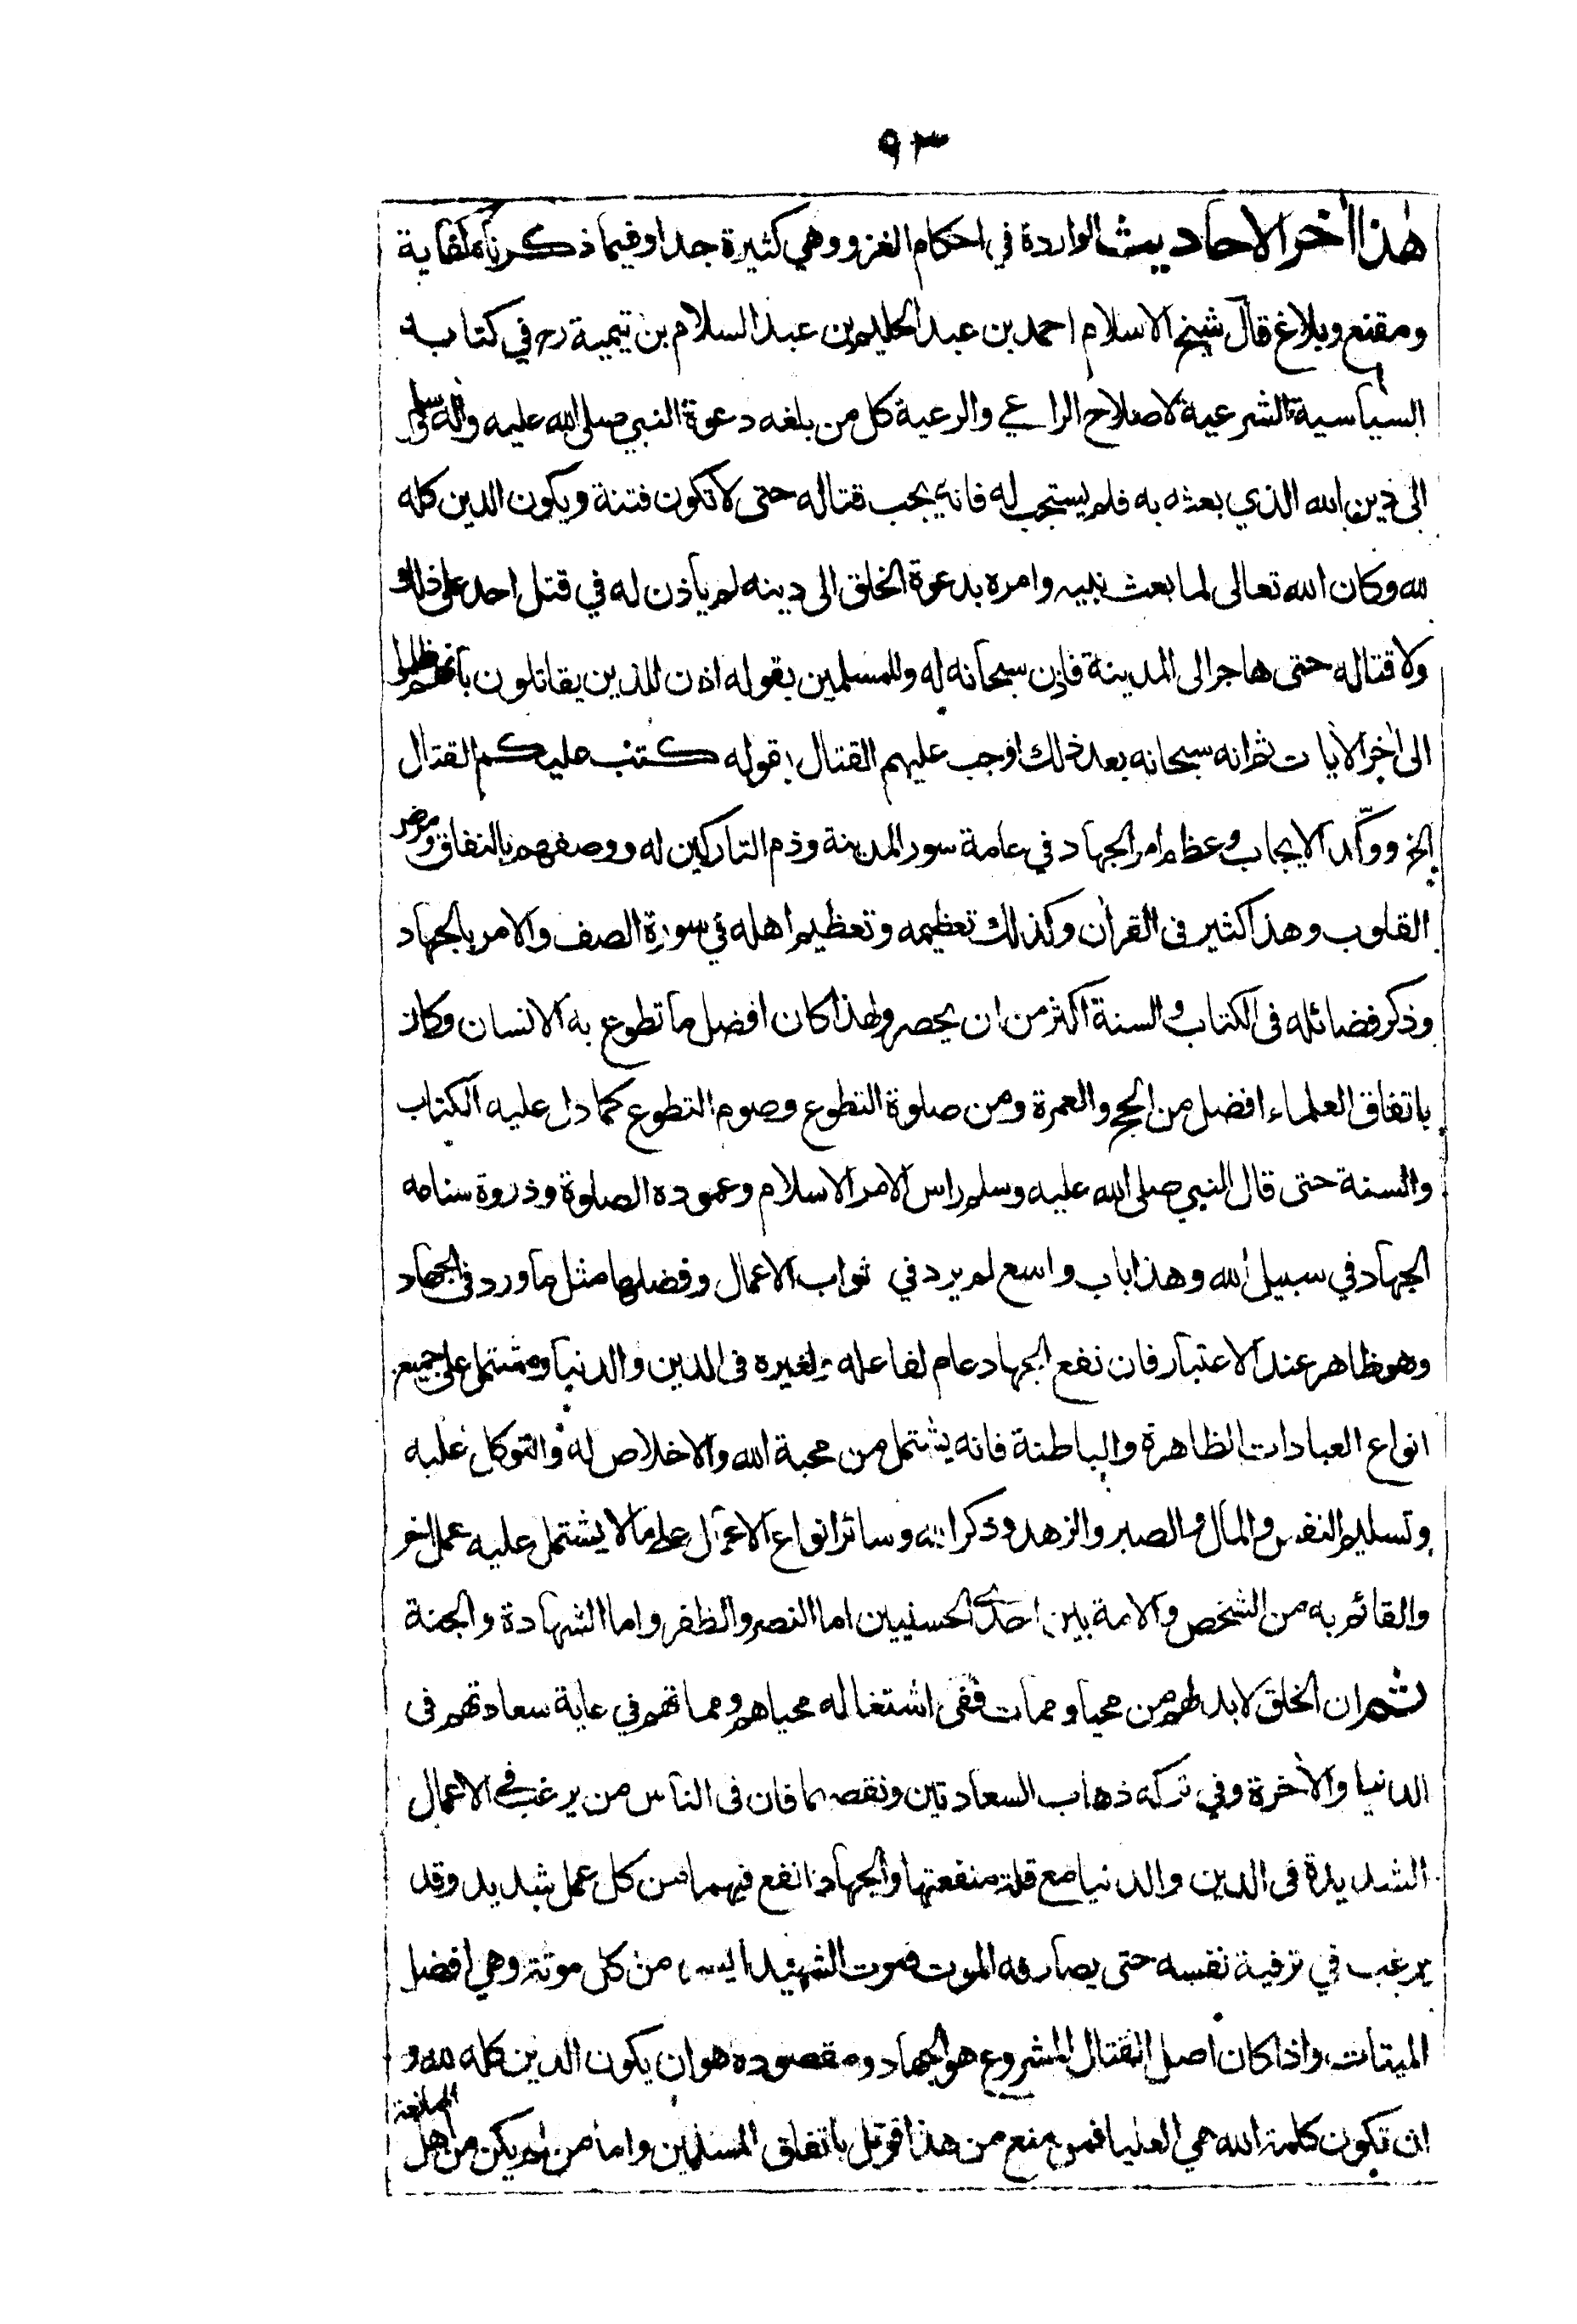 ٩٣
هذا اٰخر الاحاديث الواردة في احكام الغزو وهي كثيرة جدا وفيما ذكرناه كفاية
ومقنع وبلاغ قال شيخ الاسلام احمد بن عبد الحليم بن عبد السلام بن تيمية رح في كتابه
السياسية الشرعية لاصلاح الراعي والرعية كل من بلغه دعوة النبي صلى الله عليه واٰله وسلم
الى دين الله الذي بعثه به فلم يستجب له فانه يجب قتاله حتى لا تكون فتنة ويكون الدين كله
لله وكان الله تعالى لما بعث نبيه وامره بدعوة الخلق الى دينه لم ياذن له في قتل احد على ذلك
ولا قتاله حتى هاجر الى المدينة فاذن سبحانه له وللمسلمين بقوله اذن للذين يقاتلون بانهم ظلموا
الى اٰخر الاٰيات ثم انه سبحانه بعد ذلك اوجب عليهم القتال بقوله كتب عليكم القتال
الخ ووكّد الايجاب وعظم امر الجهاد في عامة سور المدينة وذم التاركين له ووصفهم بالنفاق ومرض
القلوب وهذا كثير فى القراٰن وكذلك تعظيمه وتعظيم اهله في سورة الصف والامر بالجهاد
وذكر فضائله فى الكتاب والسنة اكثر من ان يحصر ولهذا كان افضل ما تطوع به الانسان وكان
باتفاق العلماء افضل من الحج والعمرة ومن صلوة التطوع وصوم التطوع كما دل عليه الكتاب
والسنة حتى قال النبي صلى الله عليه وسلم راس الامر الاسلام وعموده الصلوة وذروة سنامه
الجهاد في سبيل الله وهذا باب واسع لم يرد في ثواب الاعمال وفضلها مثل ما ورد فى الجهاد
وهو ظاهر عند الاعتبار فان نفع الجهاد عام لفاعله ولغيره فى الدين والدنيا ومشتمل على جميع
انواع العبادات الظاهرة والباطنة فانه يشتمل من محبة الله والاخلاص له والتوكل عليه
وتسليم النفس والمال والصبر والزهد وذكر الله وسائر انواع الاعمال على ما لا يشتمل عليه عمل اخر
والقائم به من الشخص والامة بين احدى الحسنيين اما النصر والظفر واما الشهادة والجنة
ثم ان الخلق لا بد لهم من محيا وممات ففى اشتغاله محياهم ومماتهم في غاية سعادتهم فى
الدنيا والاٰخرة وفي تركه ذهاب السعادتين ونقصهما فان فى الناس من يرغب في الاعمال
الشديدة فى الدين والدنيا مع قلة منفعتها والجهاد انفع فيهما من كل عمل شديد وقد
يرغب في ترفية نفسه حتى يصادفه الموت فموت الشهيد ايسر من كل موتة وهي افضل
الميتات واذا كان اصل القتال المشروع هو الجهاد ومقصوده هو ان يكون الدين كله لله و
ان تكون كلمة الله هي العليا فمن منع من هذا قوتل باتفاق المسلمين واما من لم يكن من اهل الممانعة